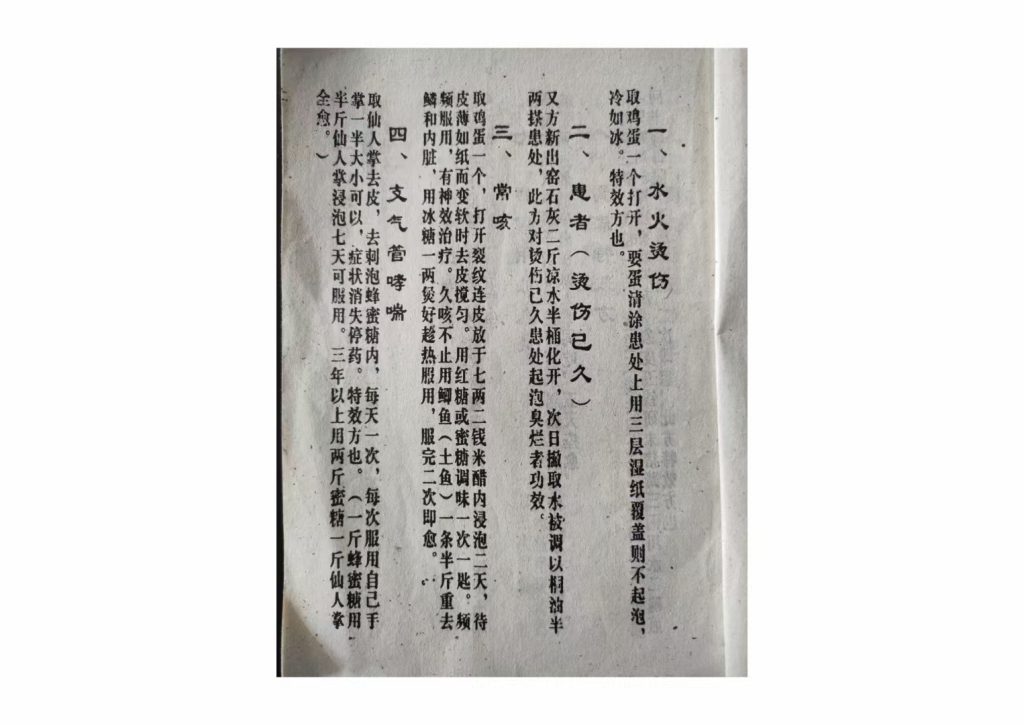 一、水火烫伤
取鸡蛋一个打开，要蛋清涂患处上用三层湿纸覆盖则不起泡，
冷如冰。特效方也。
二、患者（烫伤已久）
又方新出窑石灰二斤凉水半桶化开，次日撇取水被调以桐油半
两搽患处，此方对烫伤已久患处起泡臭烂者功效。
三、常咳
取鸡蛋一个，打开裂纹连皮放于七两二钱米醋内浸泡二天，待
皮薄如纸而变软时去皮搅匀。用红糖或蜜糖调味一次一匙。频
频服用，有神效治疗。久咳不止用鲫鱼（土鱼）一条半斤重去
鳞和内脏，用冰糖一两煲好趁热服用，服完二次即愈。
四、支气管哮喘
取仙人掌去皮，去刺泡蜂蜜糖内，每天一次，每次服用自己手
掌一半大小可以，症状消失停药。特效方也。（一斤蜂蜜糖用
半斤仙人掌浸泡七天可服用。三年以上用两斤蜜糖一斤仙人掌
全愈。）